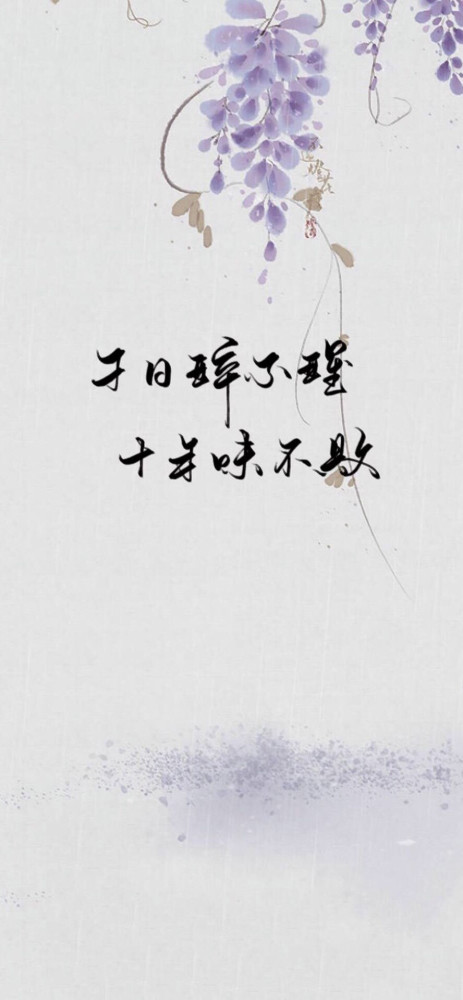 千日醉不醒
十年味不败